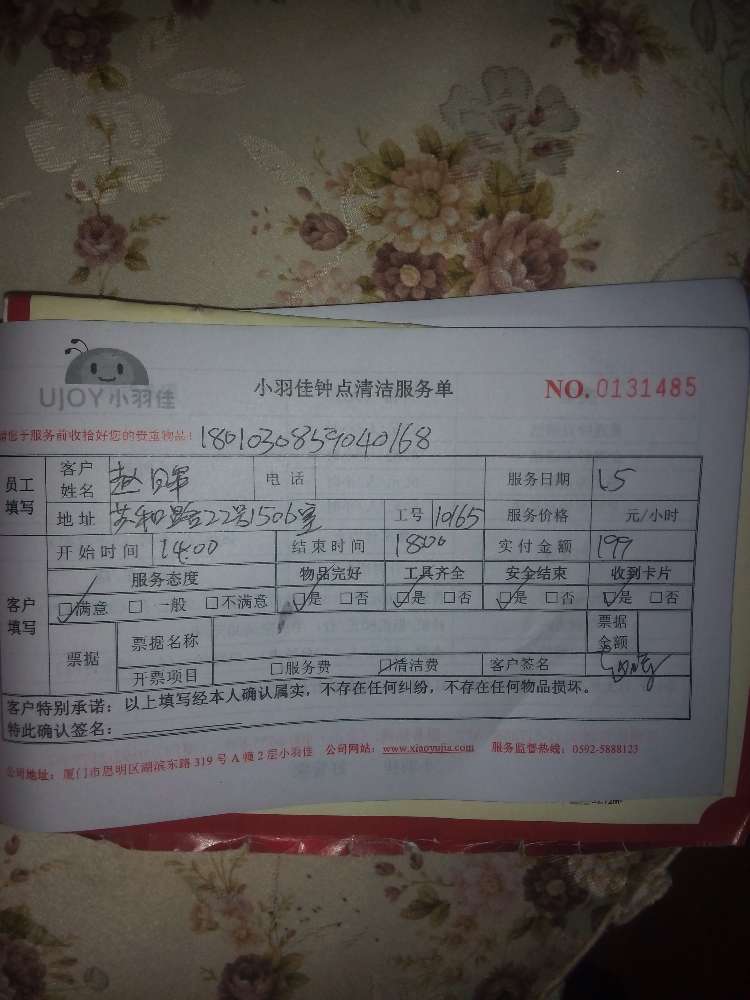 UJOY小羽佳
小羽佳钟点清洁服务单
NO. 0131485
请您于服务前收拾好您的贵重物品!
1801030859040168
员工填写 客户姓名 赵 电话 服务日期 15
地址 22号1506室 工号 10165 服务价格 元/小时
客户填写 开始时间 14:00 结束时间 1800 实付金额 199
服务态度 物品完好 工具齐全 安全结束 收到卡片
□满意 □一般 □不满意 □是 □否 □是 □否 □是 □否 □是 □否
票据 票据名称 票据金额
开票项目 □服务费 □清洁费 客户签名
客户特别承诺:以上填写经本人确认属实,不存在任何纠纷,不存在任何物品损坏。
特此确认签名:
公司地址:厦门市思明区湖滨东路319号A幢2层小羽佳 公司网站:www.xiaoyujia.com 服务监督热线:0592-5888123